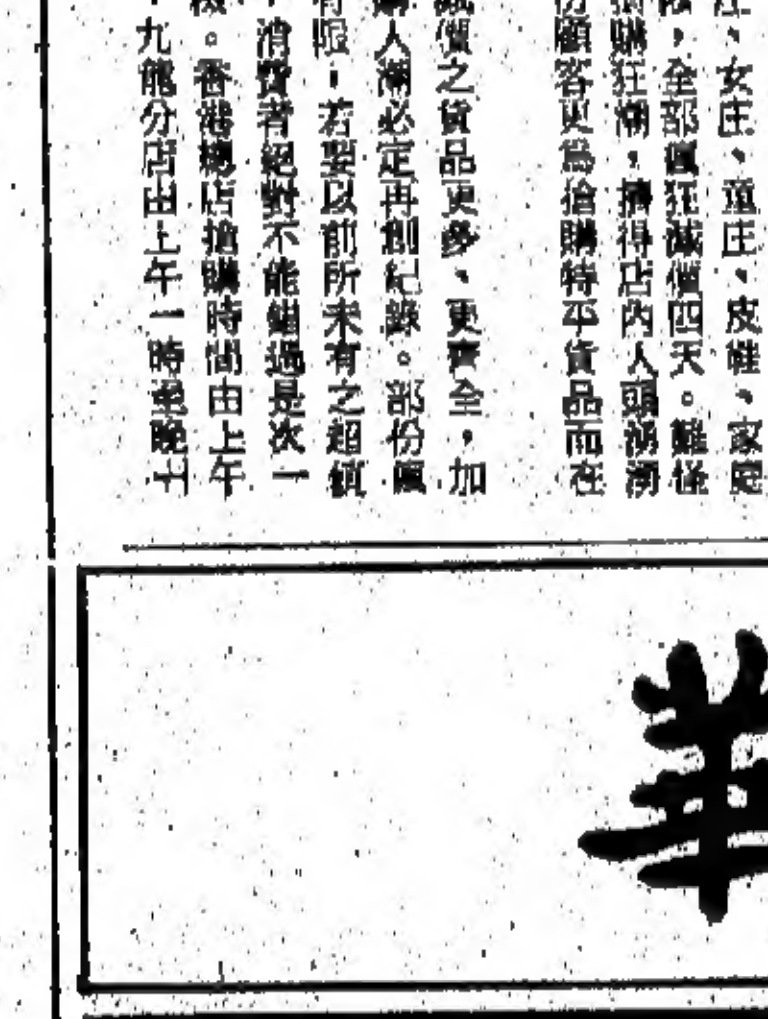 庄、女庄、童庄、皮鞋、家庭
，全部瘋狂減價四天。難怪
搶購狂潮，擠得店內人頭湧湧
份顧客更為搶購特平貨品而在
減價之貨品更多、更齊全，加
購人潮必定再創紀錄。部份瘋
有限，若要以前所未有之超值
，消費者絕對不能錯過是次一
機。香港總店搶購時間由上午
，九龍分店由上午一時至晚十
華